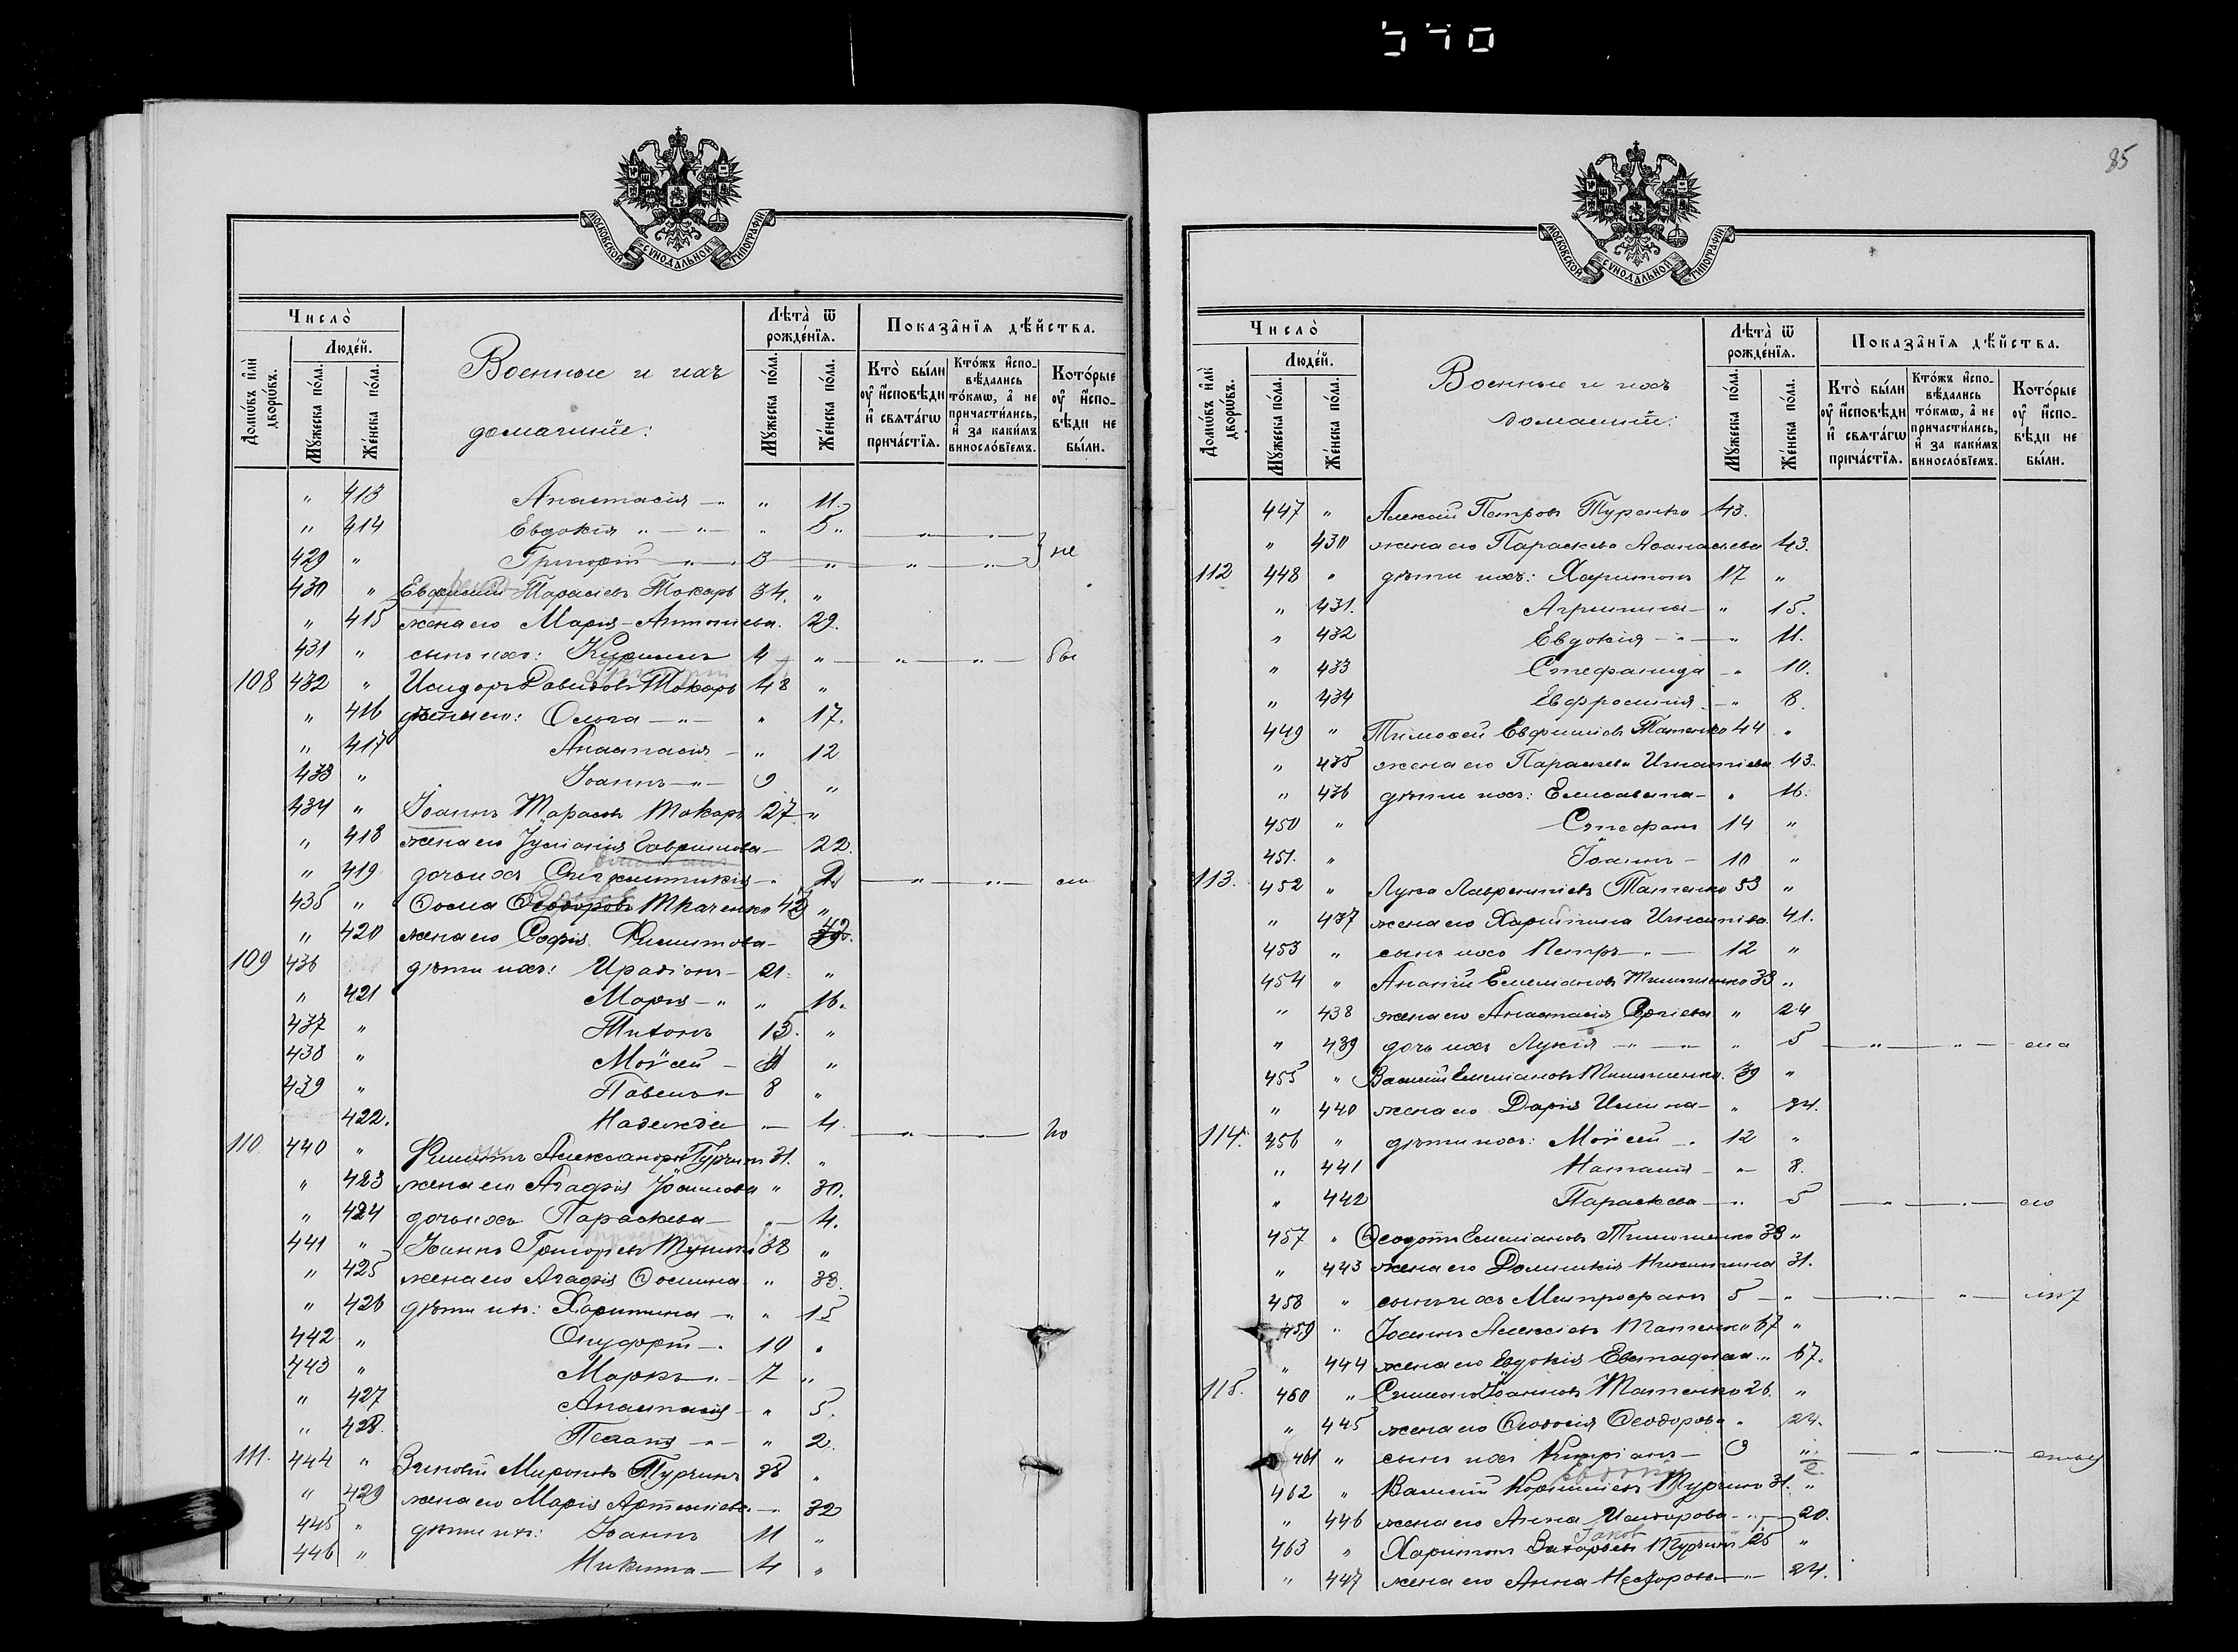 540
МОСКОВСКОЙ СУНОДАЛЬНОЙ ТИПОГРАФІИ
Число̀
Людéй.
Домѡ́въ и҆лѝ дворѡ́въ.
Мꙋ́жеска по́ла.
Же́нска по́ла.
Военные и ихъ
домашніе:
Лѣ́та ѿ рожде́нїя.
Мꙋ́жеска по́ла.
Же́нска по́ла.
Показа̂нїя дѣ́йства.
Кто̀ бы́ли ᲂу҆ и҆сповѣ́ди и҆ свята́гѡ прича́стїя.
Кто́жъ и҆споვѣ́дались то́кмѡ, а҆ не причасти́лись, и҆ за каки́мъ винослóвїемъ.
Кото́рые ᲂу҆ и҆сповѣ́ди не бы́ли.
" 413 Анастасія — " 11.
" 414 Евдокія " — " 5 "
429 " Григорій — " 3 — " " " не
430 " Тарасіевъ Токарь 34. "
" 415 жена его Марія Антоніева. 29.
431 " сынъ ихъ: 4 " " " бы
108 432 " Исидоръ Давидовъ Токарь 48 "
" 416 дѣти его: Ольга — " — " 17.
" 417 Анастасія — " 12
433 " Іоаннъ — " — 9 "
434 " Іоаннъ Тарасовъ Токарь 27 "
" 418 жена его Іуліанія Гаврилова — 22.
" 419 дочь ихъ — " 2 — " "
435 " Ѳома Ѳеодоровъ Ткаченко 42 "
" 420 жена его Софія Филиппова —
109 436 дѣти ихъ: Иродіонъ — 21. "
" 421 Марія — " " 16.
437 " Тихонъ 13. "
438 " Моѵсей — "
439 " Павелъ — 8 "
422. Надежда — 4. — " — "
110 440 " Александровъ Турчинъ 31. "
" 423 жена его Агафія " 30.
" 424 дочь ихъ Параскева — " — 4.
441 " Іоаннъ Григорьевъ 38 "
" 425 жена его Агафія Ѳомина " 33.
" 426 дѣти ихъ: Харитина — " " 15
442 " Онуфрій — . 10 "
443 " Маркъ " — 7 "
" 427 Анастасія — " 5.
" 428. Пелагія — " — " 2.
111. 444 " Зиновій Мироновъ Турчинъ 38 "
" 429 жена его Марія Артеміева. — 32
445 " дѣти ихъ: Іоаннъ 11 "
446 " Никита — 4 "
85
МОСКОВСКОЙ СУНОДАЛЬНОЙ ТИПОГРАФІИ
Число̀
Людéй.
Домѡ́въ и҆лѝ дворѡ́въ.
Мꙋ́жеска по́ла.
Же́нска по́ла.
Военные и ихъ
домашніе:
Лѣ́та ѿ рожде́нїя.
Мꙋ́жеска по́ла.
Же́нска по́ла.
Показа̂нїя дѣ́йства.
Кто̀ бы́ли ᲂу҆ и҆сповѣ́ди и҆ свята́гѡ прича́стїя.
Кто́жъ и҆сповѣ́дались то́кмѡ, а҆ не причасти́лись, и҆ за каки́мъ винослóвїемъ.
Кото́рые ᲂу҆ и҆сповѣ́ди не бы́ли.
447 " Алексій Петровъ Туренко 43.
" 430 жена его Параскева Аѳанасьева 43.
112 448 " дѣти ихъ: Харитонъ 17 "
" 431. Агриппина — " 15.
" 432 Евдокія — " — " 11.
" 433 Стефанида — " 10.
" 434 Евфросинія — " 8.
449 " Тимоѳей Евфиміевъ Татенко 44 "
" 435 жена его Параскева Игнатіева 43.
" 436 дѣти ихъ: Елисавета — " 16.
450 " Стефанъ 14 "
451. " Іоаннъ — 10 "
113. 452 " Лука Лаврентіевъ Татенко 53 "
" 437 жена его Харитина Игнатіева 41.
453 " сынъ ихъ Петръ — " — 12 "
454 " Ананій Емеліановъ Тимошенко 33 "
" 438 жена его Анастасія Сергіева " 24
" 439 дочь ихъ Лукія — " — " — " 5 — " — " —
455 " Василій Емеліановъ Тимошенко. 39 "
" 440 жена его Дарія Ильина — " 34.
114. 456 " дѣти ихъ: Моѵсей — . 12 "
" 441 Наталія — " — 8.
" 442 Параскева — " 5 — " — " —
457 " Ѳеодотъ Емеліановъ Тимошенко 33 "
" 443 жена его Домникія Никитина 31.
458 " сынъ ихъ Митрофанъ 5 — " — " — " —
459 " Іоаннъ Алексіевъ Татенко 67 "
" 444 жена его Евдокія Евстафіева " 67.
115. 460 " Симеонъ Іоанновъ Татенко 26. "
" 445 жена его Ѳеодосія Ѳеодорова " 24.
461 " сынъ ихъ Кипріанъ — 9 " — " —
462 " Василій Турчинъ 31. "
" 446 жена его Анна Исидорова — " 20.
463 " Харитонъ Захарьевъ Турчинъ 25 "
" 447 жена его Анна Несторова — " — 24.